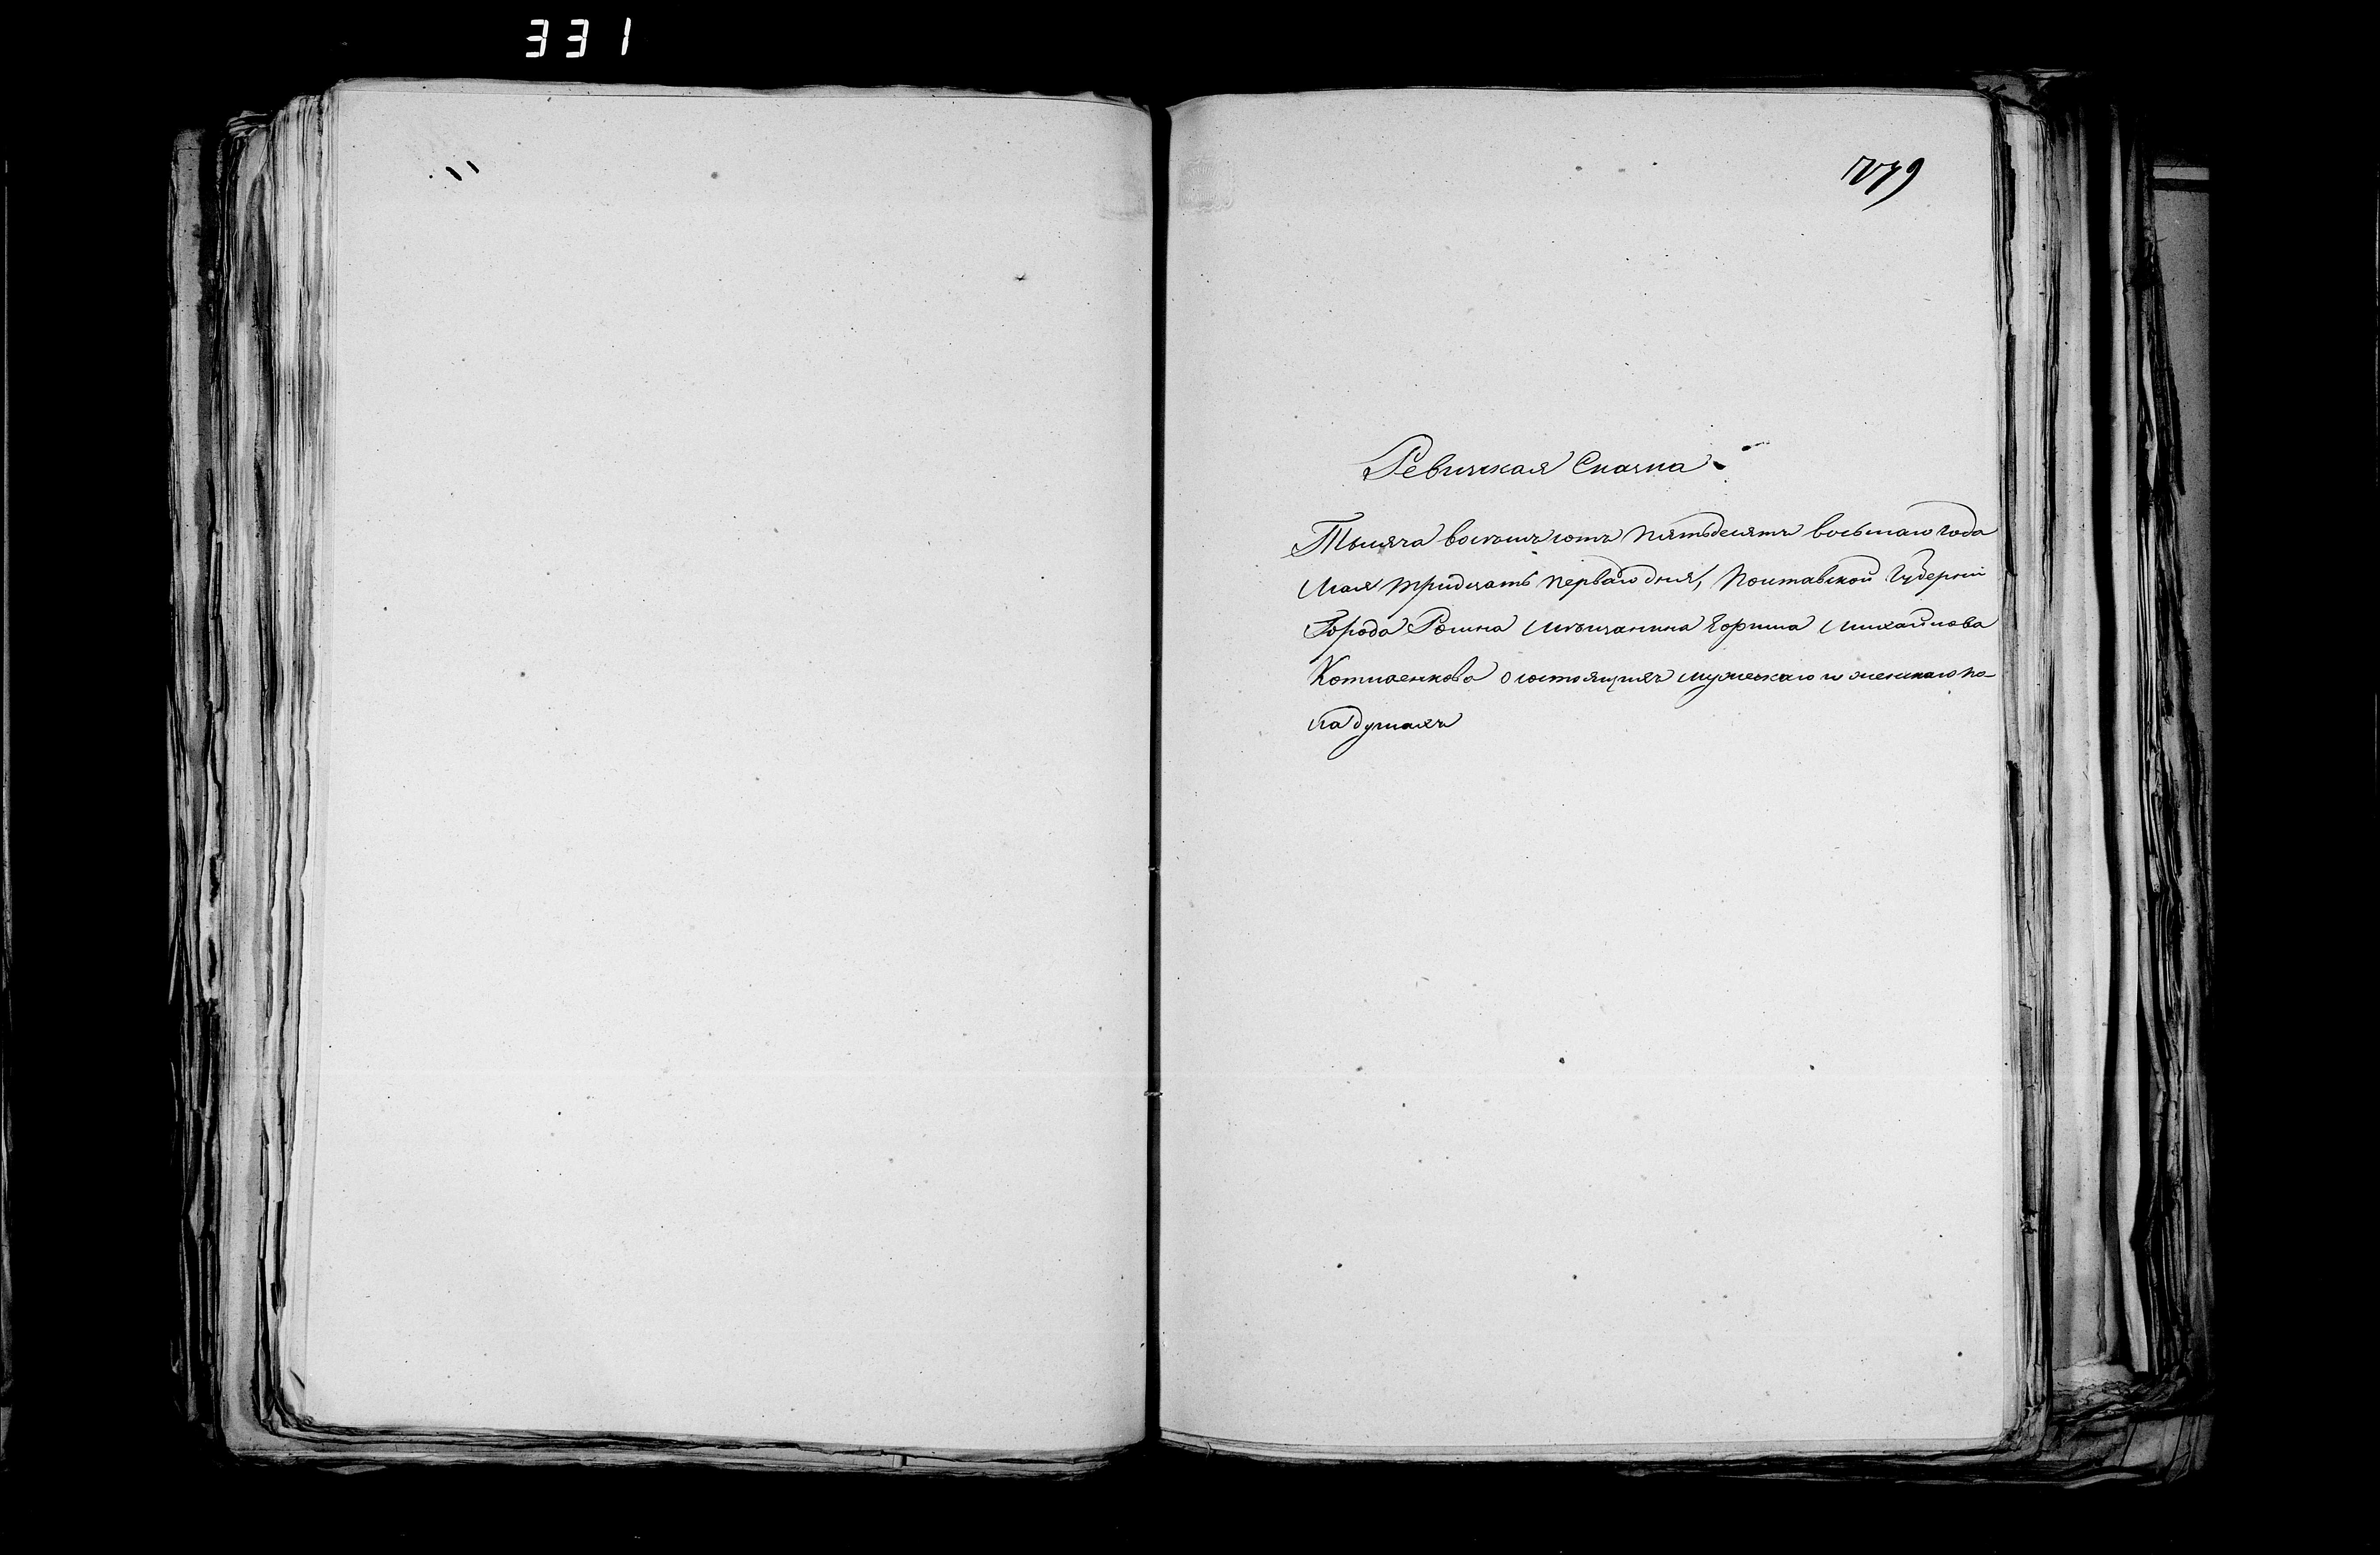 331
Ревизская Сказка
Тысяча восемьсотъ пятьдесятъ восьмаго года
Мая тридцать перваго дня, Полтавской Губерніи
Города Ромна мѣщанина Михайлова
о состоящихъ мужескаго и женскаго по-
ла душахъ